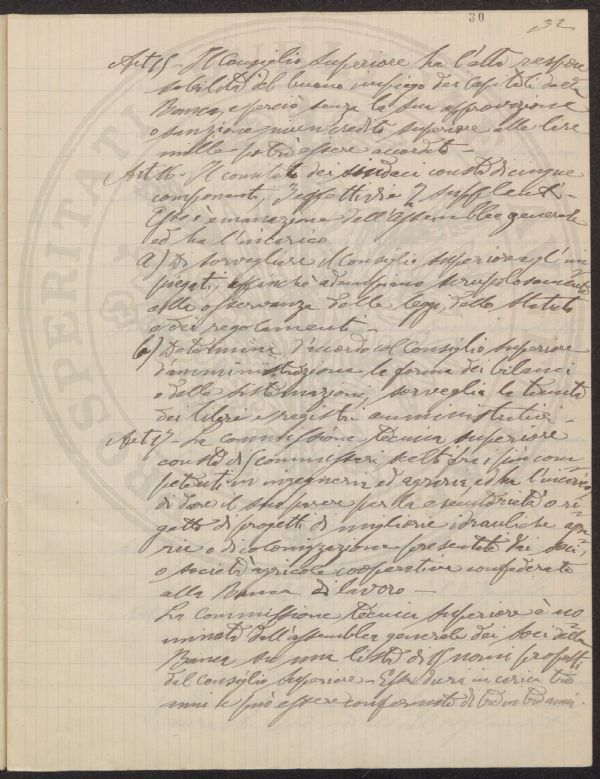 30
32
Art 15 - Il Consiglio Superiore ha l'alta respon
sabilità del buono impiego dei Capitali della
Banca, e perciò senza la sua approvazione
o sanzione niun credito superiore alle lire
mille potrà essere accordato -
Art 16 - Il comitato dei sindaci consta di cinque
componenti, 3 effettivi e 2 supplenti -
Esso è emanazione dell'Assemblea generale
ed ha l'incarico
a) Di sorvegliare il Consiglio superiore e gl'im
piegati, affinchè adempiano scrupolosamente
alla osservanza delle leggi, dello Statuto
e dei regolamenti -
b) Determina, d'accordo col Consiglio Superiore
d'amministrazione la forma dei bilanci
e delle sistemazioni, sorveglia la tenuta
dei libri e registri amministrativi -
Art 17 - La commissione tecnica superiore
consta di 5 commissari scelti fra i più com
petenti in ingegneria ed agraria, ed ha l'incarico
di dare il suo parere per la esecutorietà o ri-
getto di progetti di migliorie idrauliche agra-
rie o di colonizzazione presentate dai soci,
o società agricole cooperative confederate
alla Banca di lavoro -
La Commissione tecnica Superiore è no
minata dall'assemblea generale dei soci della
Banca su una lista di 15 nomi proposti
dal Consiglio Superiore - Essa dura in carica tre
anni e può essere confermata di tre in tre anni.
PROSPERITATI